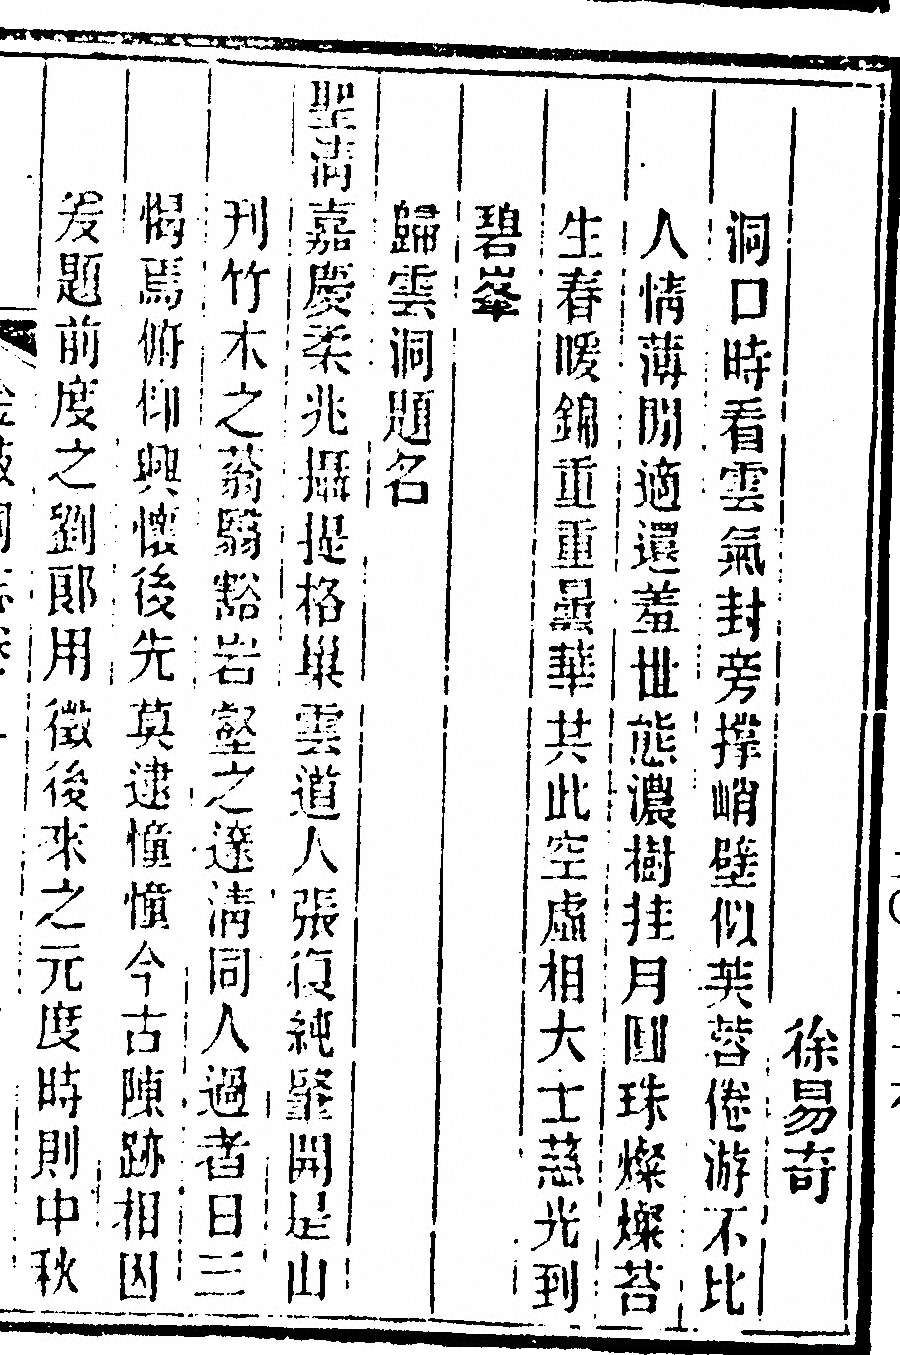 徐易奇
洞口時看雲氣封旁撑峭壁似芙蓉倦游不比
人情薄閒適還羞世態濃樹挂月圓珠燦燦苔
生春暖錦重重曇華共此空虛相大士慈光到
碧峯
歸雲洞題名
聖淸嘉慶柔兆攝提格巢雲道人張復純鑿開是山
刊竹木之蓊翳豁岩壑之邃淸同人過者日三
愒焉俯仰興懷後先莫逮憧憧今古陳跡相因
爰題前度之劉郎用徵後來之元度時則中秋